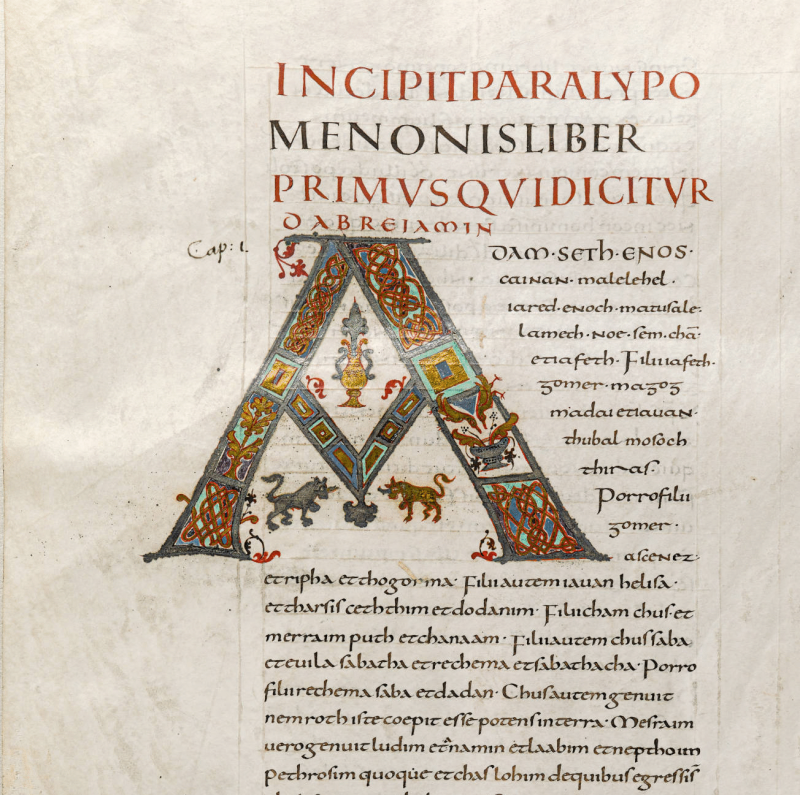 INCIPITPARALYPO
MENONISLIBER
PRIMVSQVIDICITVR
DABREIAMIN
Cap: 1.
A
DAM·SETH·ENOS·
CAINAN·malelehel·
iared·enoch·matusale·
lamech·Noe·sem·chā·
etiafeth·Filiiiafeth·
gomer·magog
madaietiauan·
thubal mosoch
thiras·
Porrofilii
gomer·
ascenez·
etripha etthogorma· Filiiautem iauan helisa·
ettharsis ceththim etdodanim· Filiicham chus·et
mesraim puth etchanaam· Filiiautem chussaba
eteuila sabatha etrechema etsabathacha· Porro
filiirechema saba etdadan· Chusautemgenuit
nemroth istecoepit essepotensinterra· Mesraim
uerogenuit ludim etanamin etlaabim etnepthoim
pethrosim quoque etchaslohim dequibusegressis